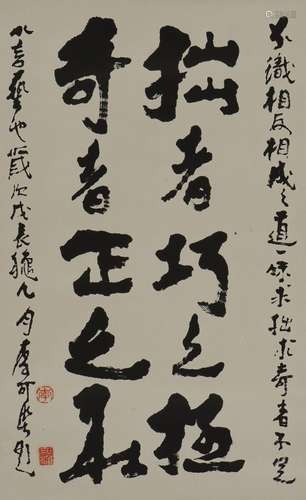 拙者巧之極
奇者正之最
不識相反相成之道一味求拙求奇者不足
以言藝也歲次戊長龍九月李可染題